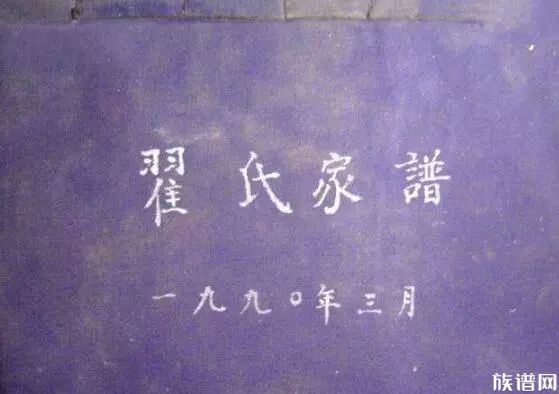 翟氏家譜
一九九〇年三月
族谱网